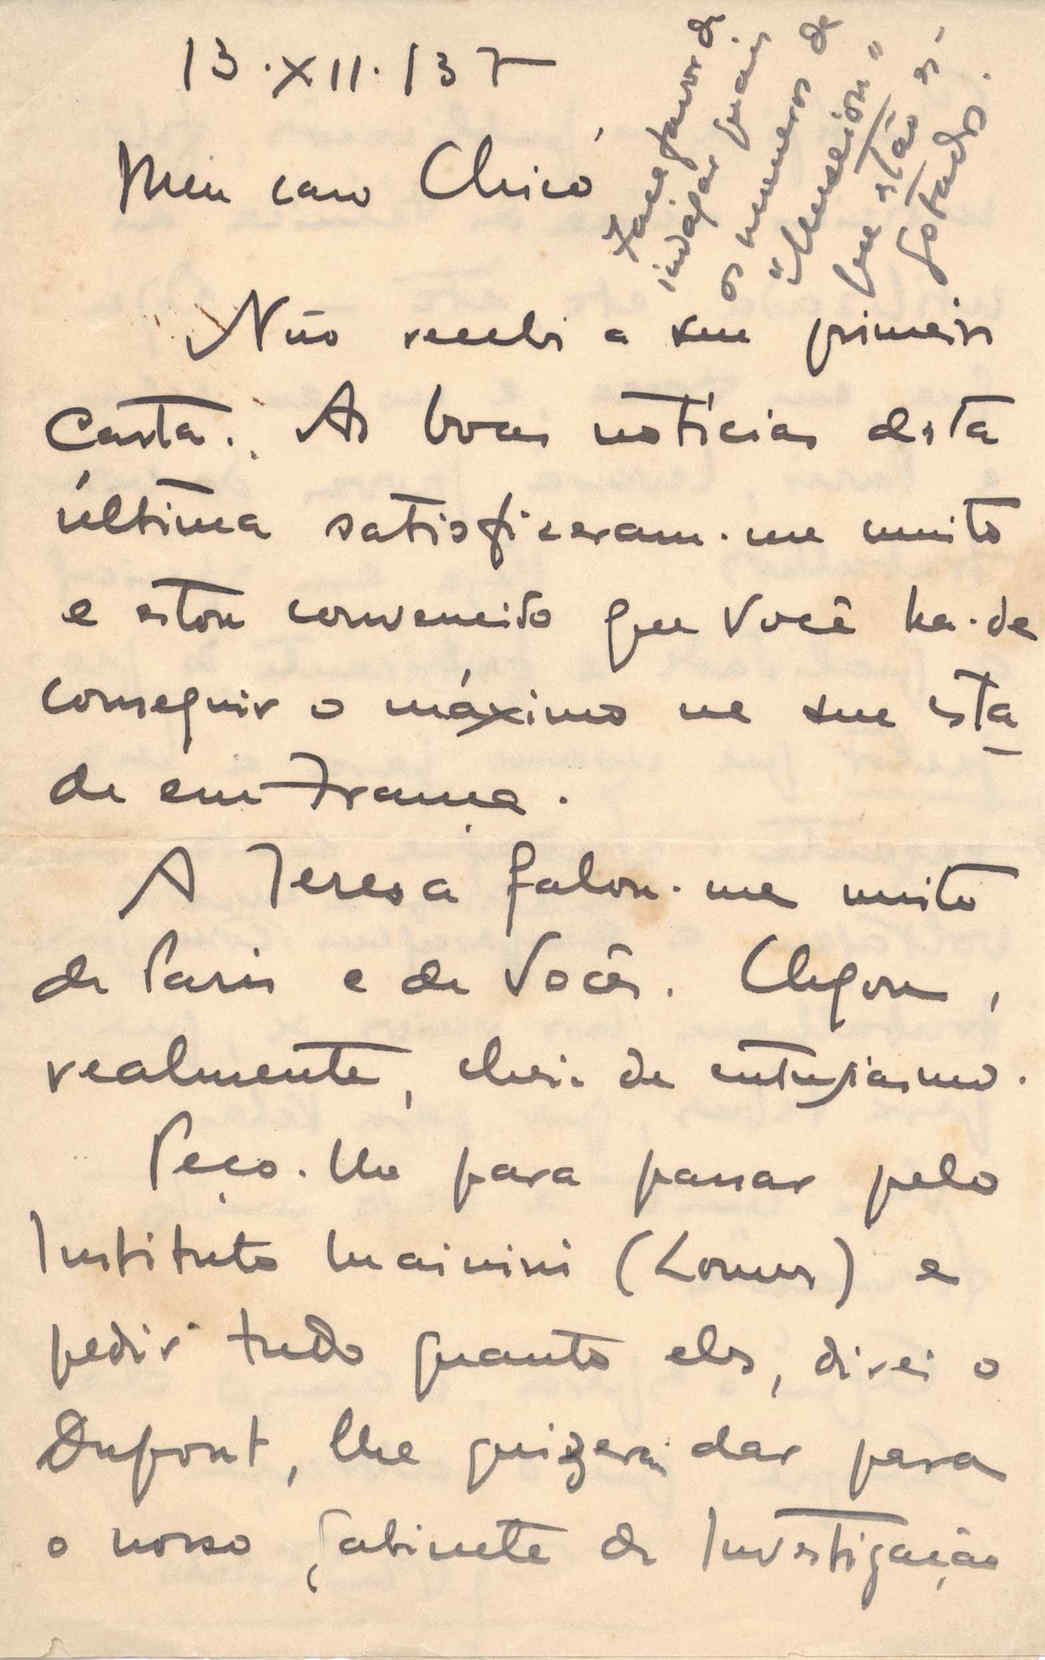 13.XII.137
Meu caro Chicó,
Faça favor de
indagar quais
os numeros de
"Mouseion"
que estão es-
gotados.
Não recebi a sua primeira
carta. As boas notícias desta
última satisfizeram-me muito
e estou convencido que Você ha-de
conseguir o máximo na sua esta
da em França.
A Teresa falou-me muito
de Paris e de Vocês. Chegou,
realmente, cheia de entusiasmo.
Peço-lhe para passar pelo
Instituto Mainini (Louvre) e
pedir tudo quanto eles, direi o
Dupont, lhe quizerem dar para
o nosso Gabinete de Investigação